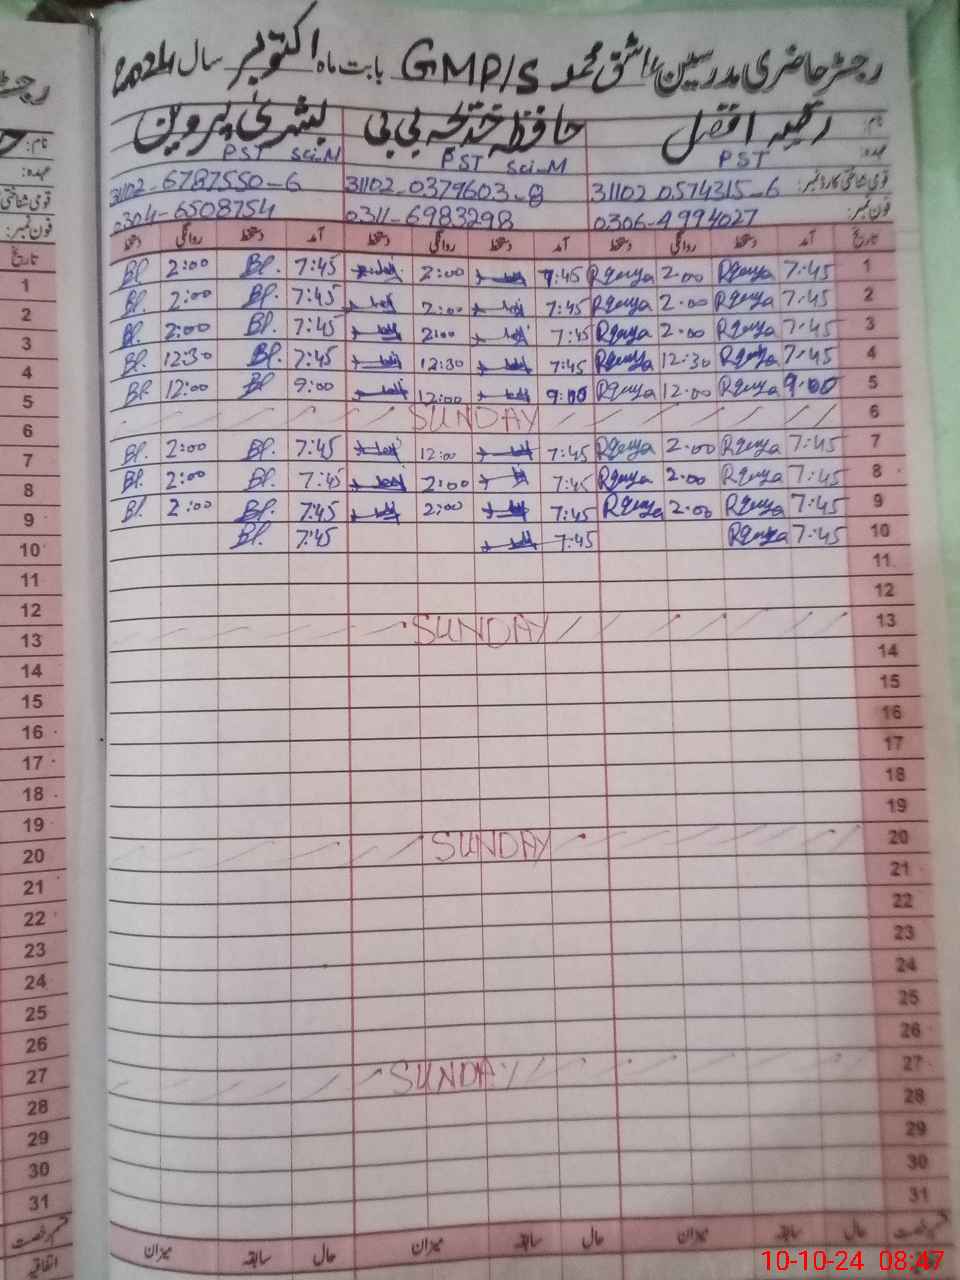 رجسٹر حاضری مدرسین GMP/S بابت ماہ اکتوبر سال 2024
نام: رقیہ افضل حافظہ خدیجہ بی بی بشریٰ پروین
عہدہ: PST PST Sci-M PST Sci-M
قومی شناختی کارڈ نمبر: 31102-0574315-6 31102-0379603-8 31102-6787550-6
فون نمبر: 0306-4994027 0311-6983298 0304-6508754
تاریخ آمد دستخط روانگی دستخط آمد دستخط روانگی دستخط آمد دستخط روانگی دستخط تاریخ
1 7:45 Rqayya 2:00 Rqayya 7:45 2:00 7:45 BP. 2:00 BP. 1
2 7:45 Rqayya 2:00 Rqayya 7:45 2:00 7:45 BP. 2:00 BP. 2
3 7:45 Rqayya 2:00 Rqayya 7:45 2:00 7:45 BP. 2:00 BP. 3
4 7:45 Rqayya 12:30 Rqayya 7:45 12:30 7:45 BP. 12:30 BP. 4
5 9:00 Rqayya 12:00 Rqayya 9:00 12:00 9:00 BP 12:00 BP. 5
6 SUNDAY 6
7 7:45 Rqayya 2:00 Rqayya 7:45 12:00 7:45 BP. 2:00 BP. 7
8 7:45 Rqayya 2:00 Rqayya 7:45 2:00 7:45 BP. 2:00 BP. 8
9 7:45 Rqayya 2:00 Rqayya 7:45 2:00 7:45 BP. 2:00 BP. 9
10 7:45 Rqayya 7:45 7:45 BP. 10
11 11
12 12
13 SUNDAY 13
14 14
15 15
16 16
17 17
18 18
19 19
20 SUNDAY 20
21 21
22 22
23 23
24 24
25 25
26 26
27 SUNDAY 27
28 28
29 29
30 30
31 31
قسم رخصت حال سابقہ میزان حال سابقہ میزان حال سابقہ میزان قسم رخصت
اتفاقیہ
10-10-24 08:47